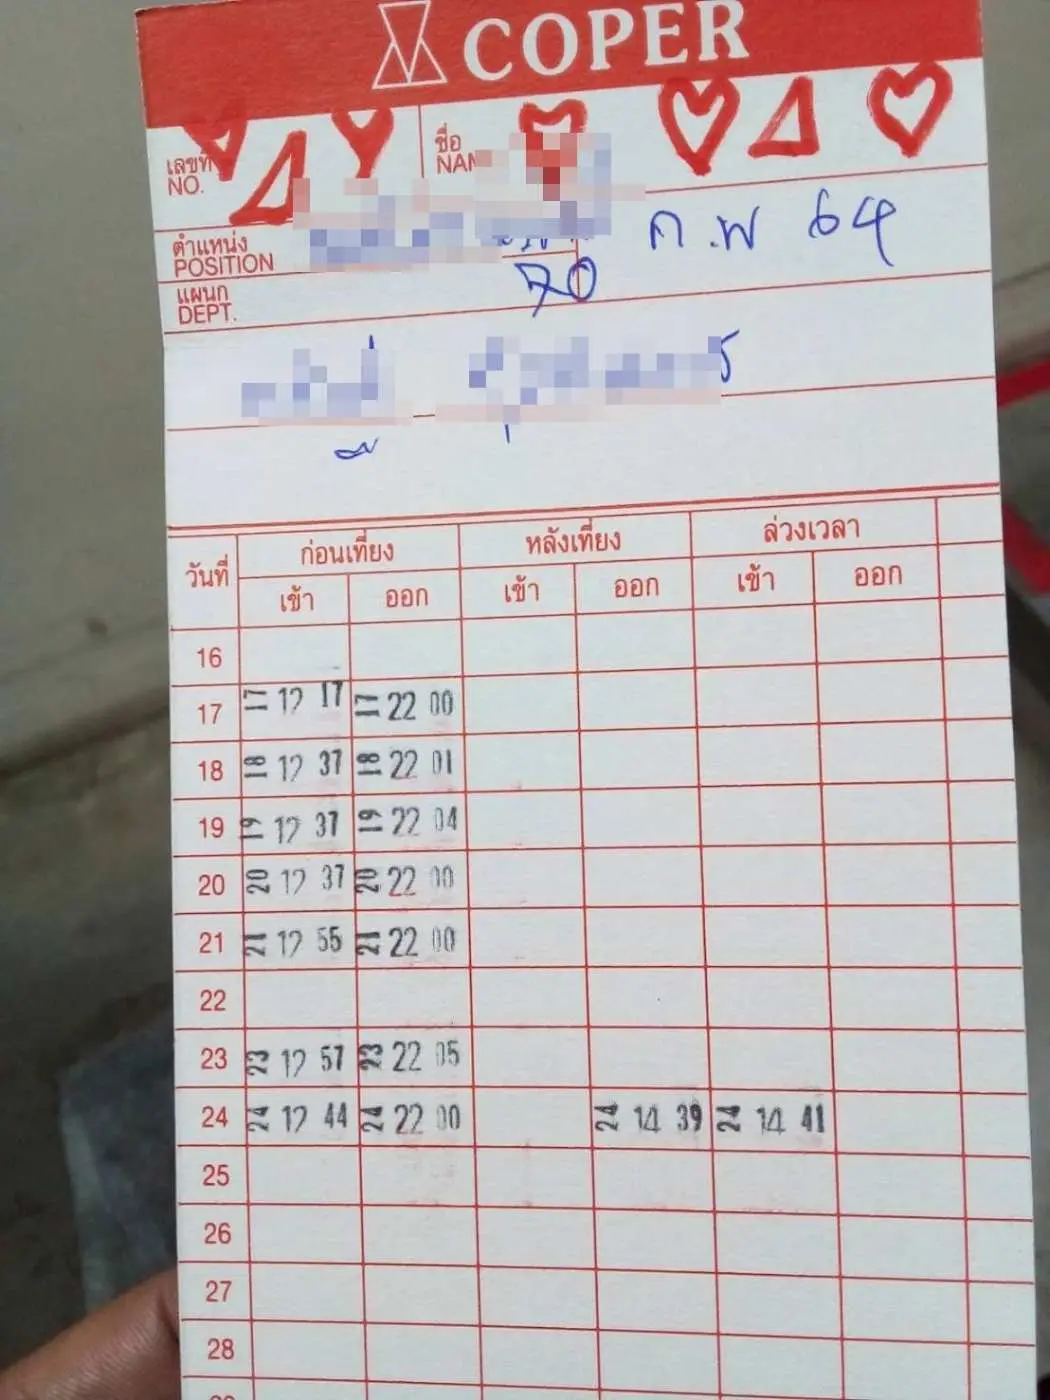 COPER
เลขที่ ชื่อ
NO.
ตำแหน่ง ก.พ 64
POSITION
70
แผนก
DEPT.
วันที่ ก่อนเที่ยง หลังเที่ยง ล่วงเวลา
เข้า ออก เข้า ออก เข้า ออก
16
17 17 12 17 17 22 00
18 18 12 37 18 22 01
19 19 12 37 19 22 04
20 20 12 37 20 22 00
21 21 12 55 21 22 00
22
23 23 12 57 23 22 05
24 24 12 44 24 22 00 24 14 39 24 14 41
25
26
27
28